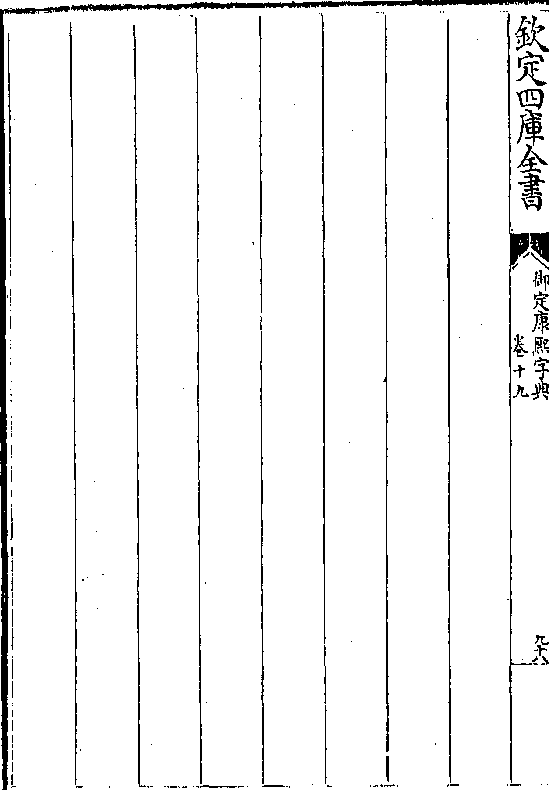 欽定四庫全書
御定康熙字典
卷十九
九十八